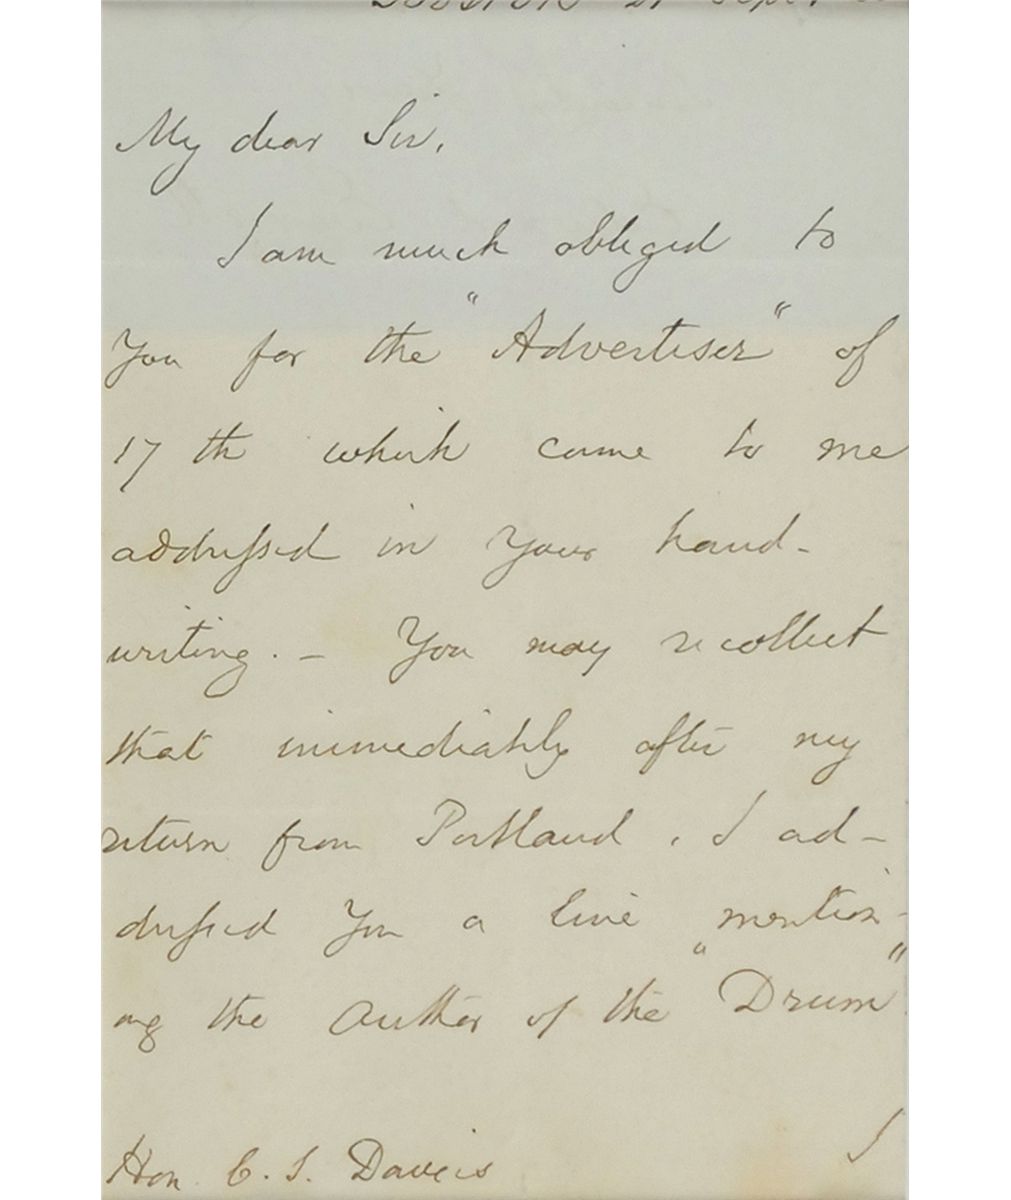 Boston 21 Sept
My dear Sir,
I am much obliged to
You for the "Advertiser" of
17 th which came to me
addressed in your hand-
writing. – You may recollect
that immediately after my
return from Portland, I ad-
dressed You a line mention-
ing the author of the "Drum"
I
Hon. C. S. Daveis